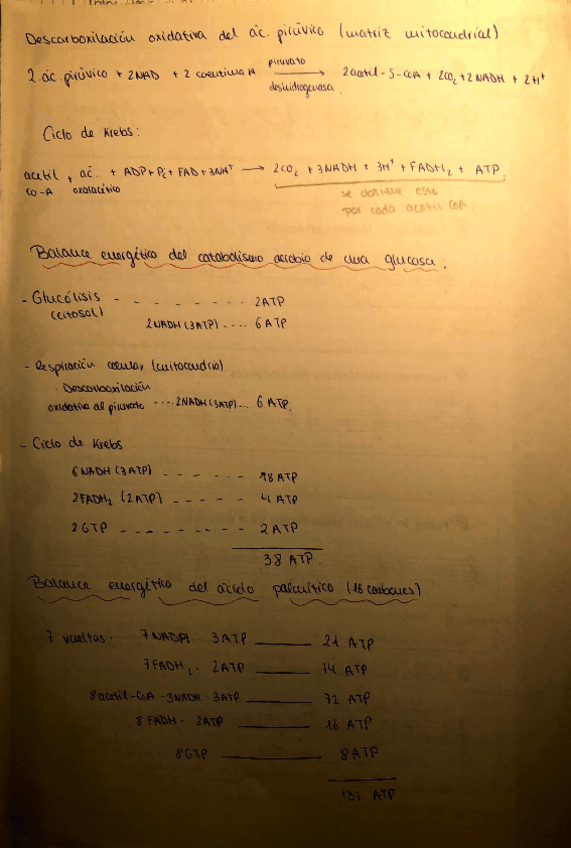 Descarboxilación oxidativa del ác. pirúvico (matriz mitocondrial)
2 ác. pirúvico + 2NAD + 2 coenzima A → 2acetil-S-CoA + 2CO₂ + 2NADH + 2H⁺
piruvato
deshidrogenasa.
Ciclo de Krebs:
acetil co-A + ác. oxalacético + ADP + Pi + FAD + 3NAD⁺ → 2CO₂ + 3NADH + 3H⁺ + FADH₂ + ATP.
se obtiene esto
por cada acetil CoA.
Balance energético del catabolismo aerobio de una glucosa.
- Glucólisis - - - - - - - - 2ATP
(citosol)
2NADH (3ATP) .... 6 ATP
- Respiración celular (mitocondria)
· Descarboxilación
oxidativa al piruvato .... 2NADH (3ATP)... 6 ATP.
- Ciclo de Krebs
6NADH (3ATP) - - - - - - 18 ATP
2FADH₂ (2ATP) - - - - - 4 ATP
2GTP - - - - - - - - 2 ATP
38 ATP.
Balance energético del ácido palmítico (16 carbonos)
7 vueltas. 7 NADH · 3ATP ____ 21 ATP
7FADH₂ · 2ATP ____ 14 ATP
8acetil-CoA - 3NADH · 3ATP ____ 72 ATP
8 FADH · 2ATP ____ 16 ATP
8GTP ____ 8ATP
131 ATP